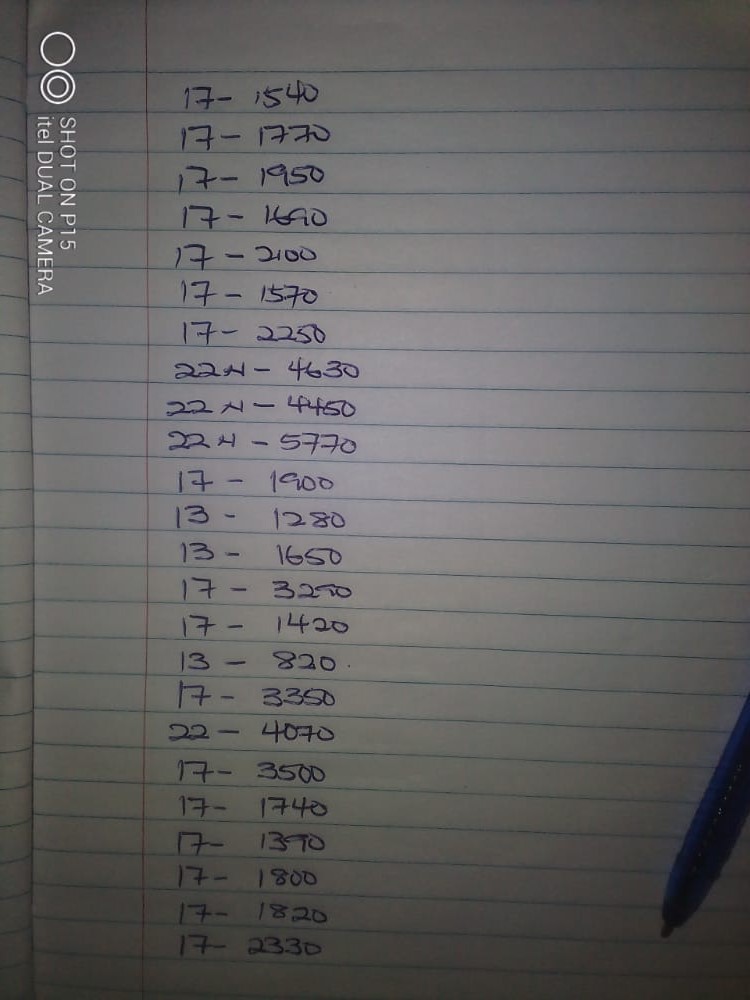 SHOT ON P15
itel DUAL CAMERA
17- 1540
17- 1770
17- 1950
17- 1690
17- 2100
17- 1570
17- 2250
22N- 4630
22N- 4450
22N- 5770
17- 1900
13- 1280
13- 1650
17-
17- 1420
13- 820
17- 3350
22- 4070
17- 3500
17- 1740
17- 1390
17- 1800
17- 1820
17- 2330